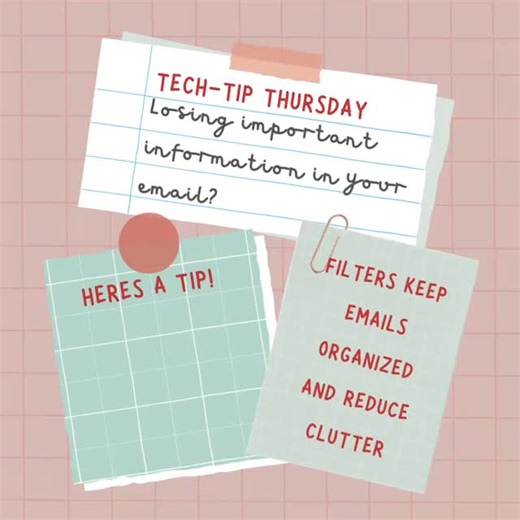 TECH-TIP THURSDAY
Losing important
information in your
email?
HERES A TIP!
FILTERS KEEP
EMAILS
ORGANIZED
AND REDUCE
CLUTTER